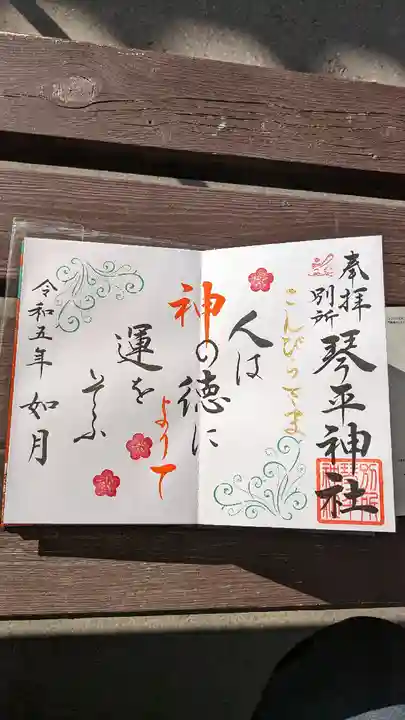 奉拝
別所
琴平神社
こんぴらさま
人は
神の徳に
よりて
運を
そふ
令和五年 如月